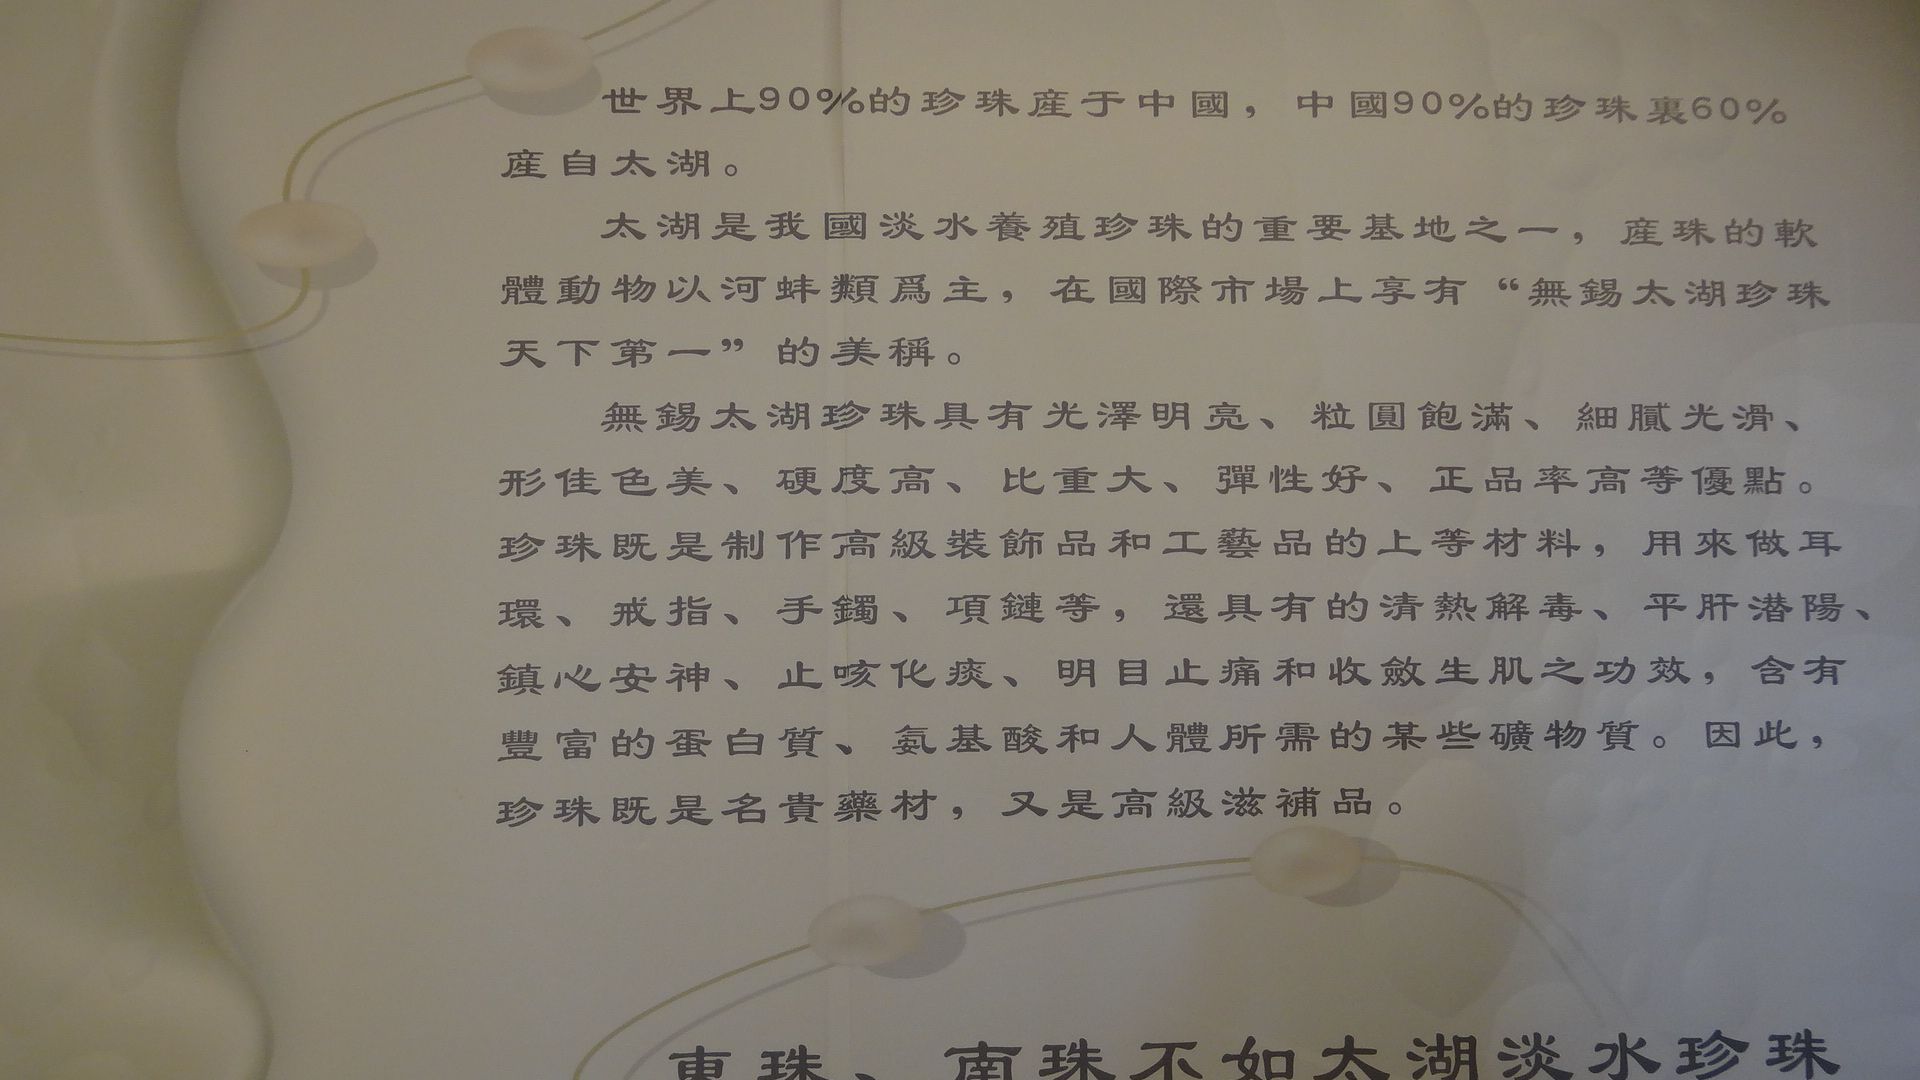 世界上90%的珍珠産于中國，中國90%的珍珠裏60%
産自太湖。
太湖是我國淡水養殖珍珠的重要基地之一，産珠的軟
體動物以河蚌類爲主，在國際市場上享有“無錫太湖珍珠
天下第一”的美稱。
無錫太湖珍珠具有光澤明亮、粒圓飽滿、細膩光滑、
形佳色美、硬度高、比重大、彈性好、正品率高等優點。
珍珠既是制作高級裝飾品和工藝品的上等材料，用來做耳
環、戒指、手鐲、項鏈等，還具有的清熱解毒、平肝潜陽、
鎮心安神、止咳化痰、明目止痛和收斂生肌之功效，含有
豐富的蛋白質、氨基酸和人體所需的某些礦物質。因此，
珍珠既是名貴藥材，又是高級滋補品。
東珠、南珠不如太湖淡水珍珠